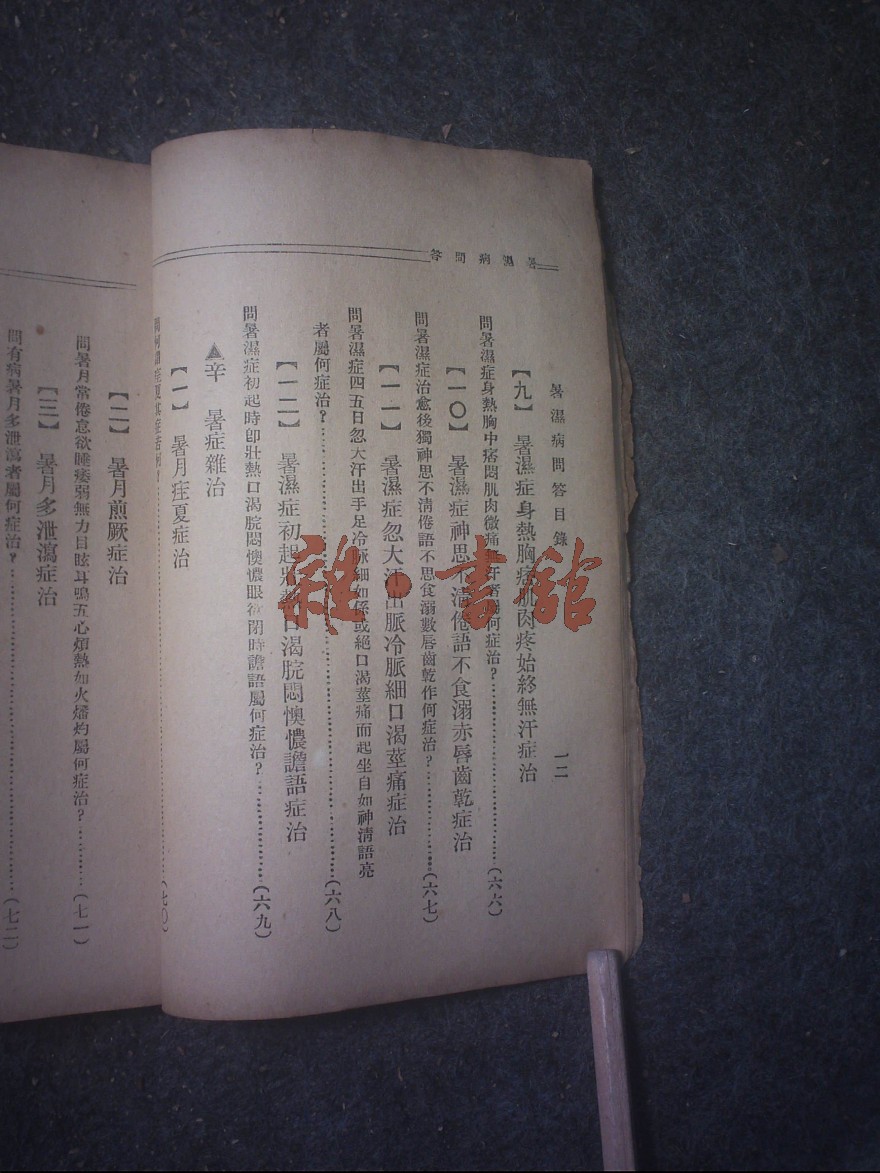 暑濕病問答
暑濕病問答目錄 一二
【九】 暑濕症身熱胸痞肌肉疼始終無汗症治
問暑濕症身熱胸中痞悶肌肉微痛無汗者屬何症治？……(六六)
【一〇】 暑濕症神思不清倦語不食溺赤唇齒乾症治
問暑濕症治愈後獨神思不清倦語不思食溺數唇齒乾作何症治？……(六七)
【一一】 暑濕症忽大汗出脈冷脈細口渴莖痛症治
問暑濕症四五日忽大汗出手足冷脈細如係或絕口渴莖痛而起坐自如神清語亮
者屬何症治？……(六八)
【一二】 暑濕症初起壯熱口渴脘悶懊憹譫語症治
問暑濕症初起時卽壯熱口渴脘悶懊憹眼欲閉時譫語屬何症治？……(六九)
▲辛 暑症雜治
【一】 暑月疰夏症治
(七〇)
【二】 暑月煎厥症治
問暑月常倦怠欲睡痿弱無力目眩耳鳴五心煩熱如火燔灼屬何症治？……(七一)
【三】 暑月多泄瀉症治
問有病暑月多泄瀉者屬何症治？……(七二)
雜·書館